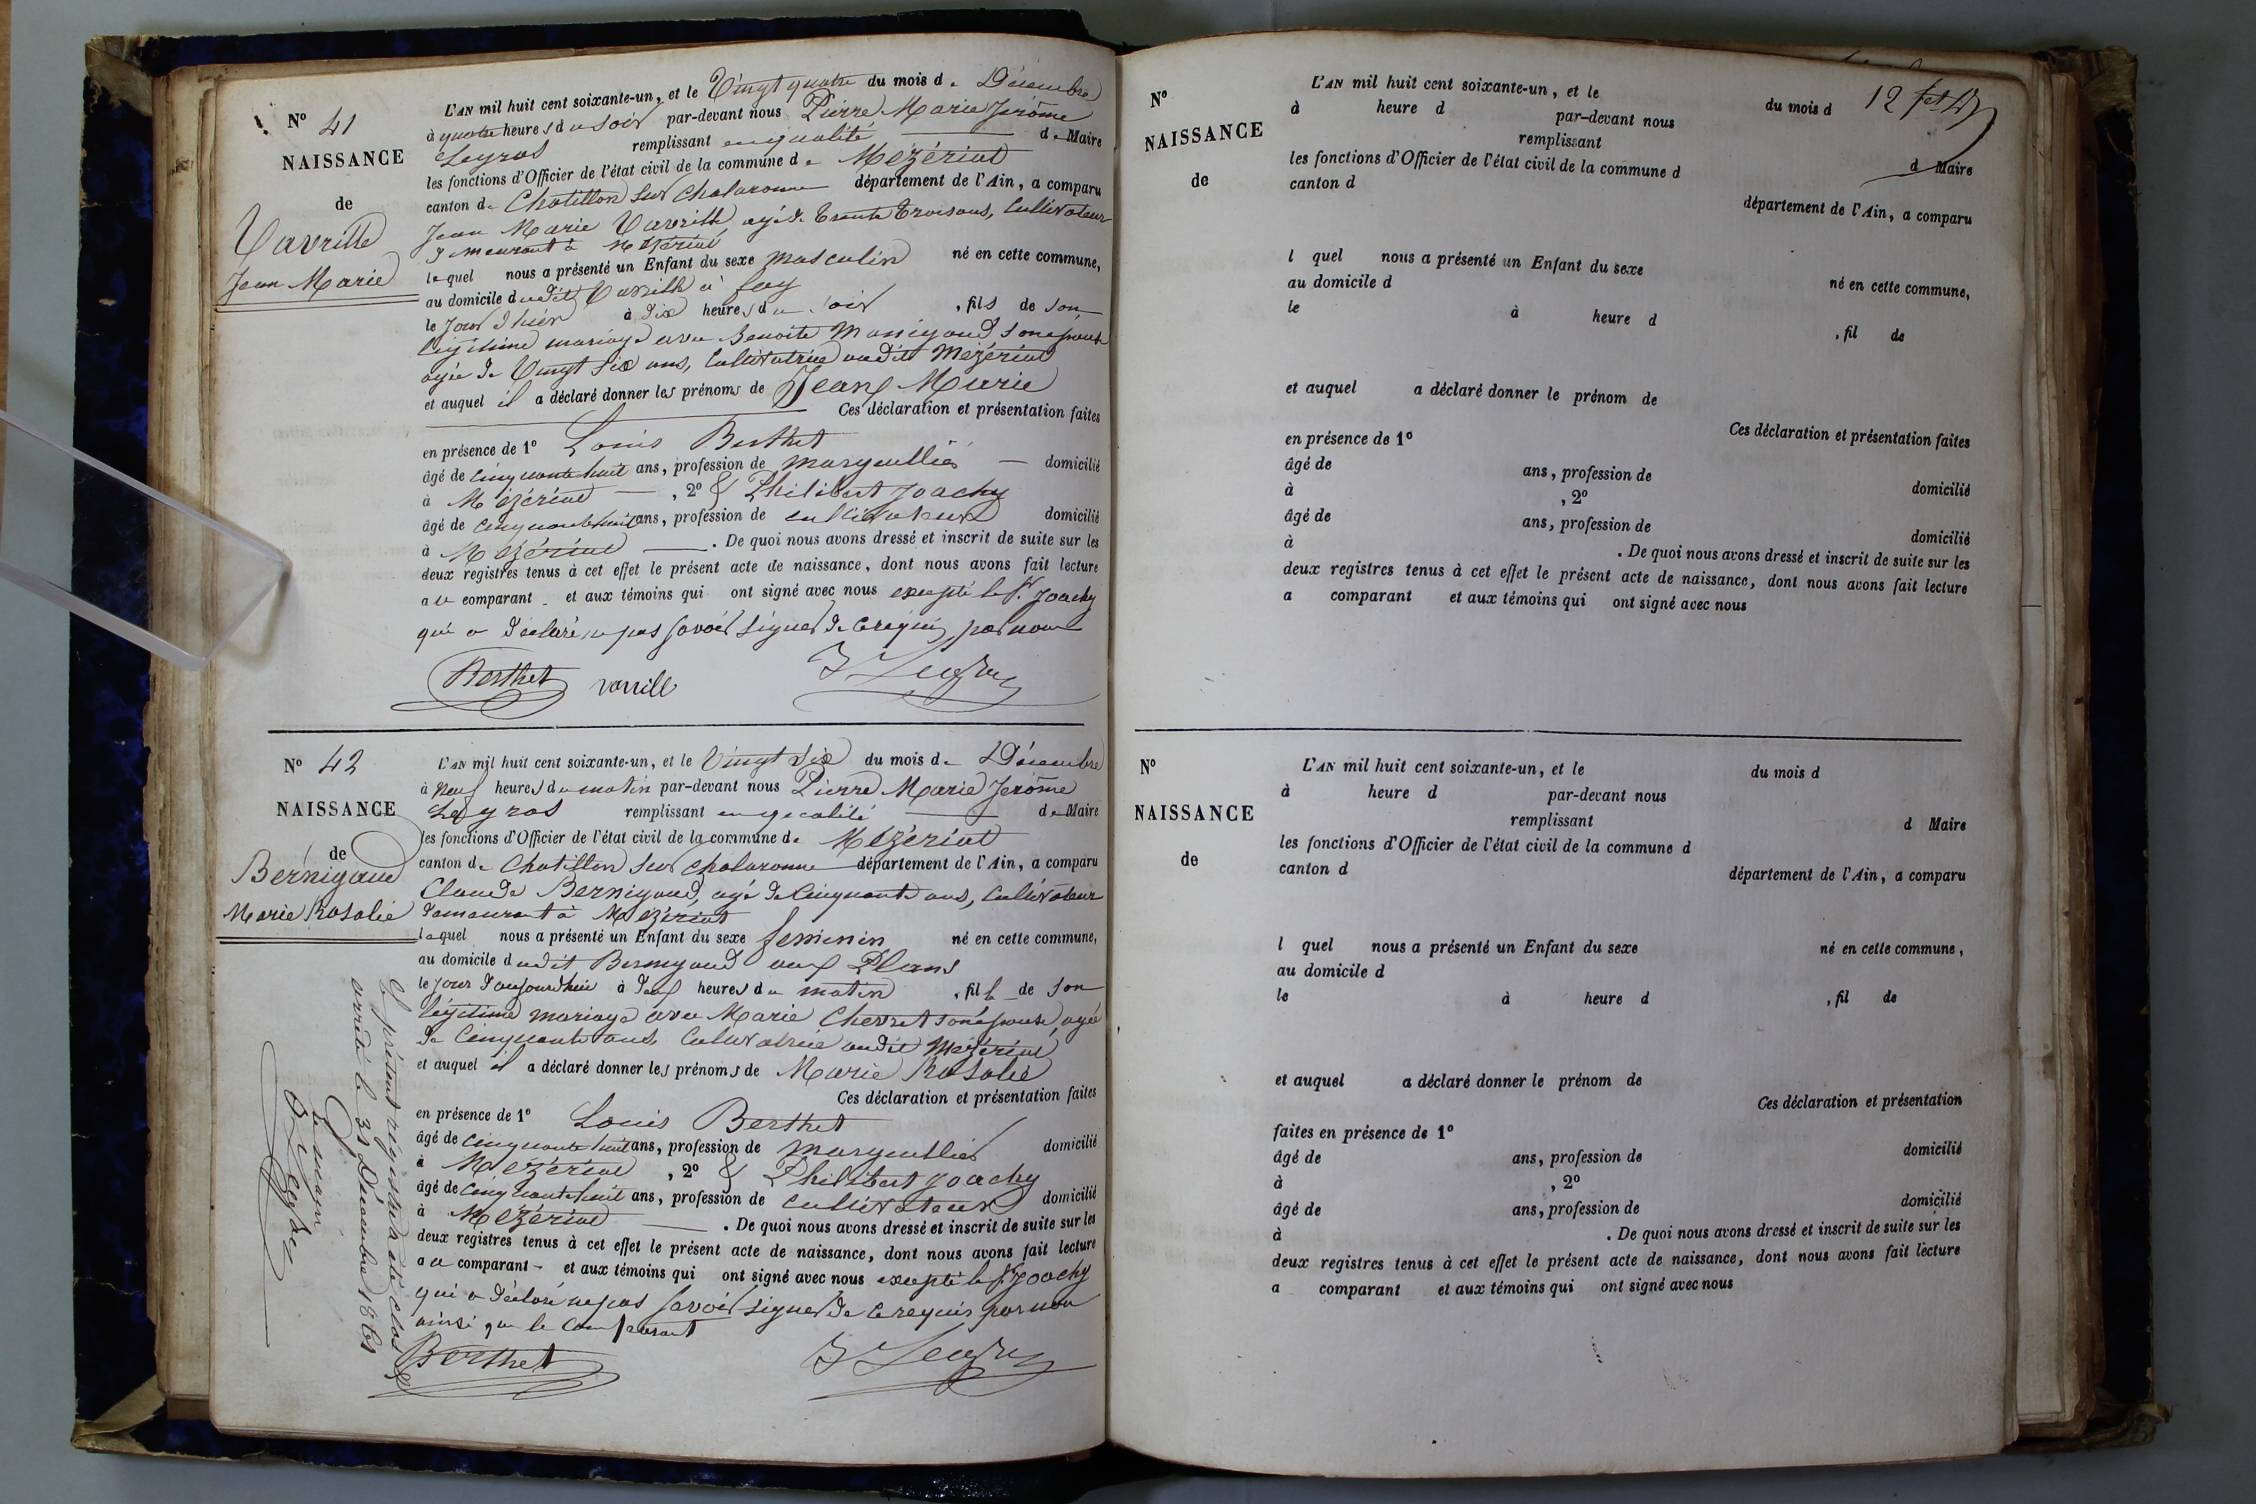 N° 41
NAISSANCE
de
Vavrille
Jean Marie
L'AN mil huit cent soixante-un, et le Vingt quatre du mois de Décembre
à quatre heures du soir par-devant nous Pierre Marie Jérôme
Leyras remplissant en qualité de Maire
les fonctions d'Officier de l'état civil de la commune de Mézériat
canton de Chatillon sur Chalaronne département de l'Ain, a comparu
Jean Marie Vavrille, agé de trente trois ans, Cultivateur
demeurant à Mézériat
lequel nous a présenté un Enfant du sexe masculin né en cette commune,
au domicile dudit Vavrille à
le jour d'hier à dix heures du soir, fils de son
légitime mariage avec Benoite son épouse
agée de Vingt six ans, Cultivatrice audit Mézériat
et auquel il a déclaré donner les prénoms de Jean Marie
Ces déclaration et présentation faites
en présence de 1° Louis Berthet
âgé de cinquante huit ans, profession de marguillier domicilié
à Mézériat, 2° & Philibert Joachy
âgé de cinquante huit ans, profession de cultivateur domicilié
à Mézériat. De quoi nous avons dressé et inscrit de suite sur les
deux registres tenus à cet effet le présent acte de naissance, dont nous avons fait lecture
au comparant et aux témoins qui ont signé avec nous excepté le Sr. Joachy
qui a déclaré ne pas savoir signer de ce requis par nous
Berthet vavrille
N° 42
NAISSANCE
de
Bernigaud
Marie Rosalie
L'AN mil huit cent soixante-un, et le Vingt six du mois de Décembre
à neuf heures du matin par-devant nous Pierre Marie Jérôme
Leyras remplissant en qualité de Maire
les fonctions d'Officier de l'état civil de la commune de Mézériat
canton de Chatillon sur Chalaronne département de l'Ain, a comparu
Claude Bernigaud, agé de Cinquante ans, Cultivateur
demeurant à Mézériat
lequel nous a présenté un Enfant du sexe feminin né en cette commune,
au domicile dudit Bernigaud aux Plans
le jour d'aujourd'hui à deux heures du matin, fille de son
légitime mariage avec Marie Chevret son épouse, agée
de Cinquante ans, Cultivatrice audit Mézériat
et auquel il a déclaré donner les prénoms de Marie Rosalie
Ces déclaration et présentation faites
en présence de 1° Louis Berthet
âgé de cinquante huit ans, profession de marguillier domicilié
à Mézériat, 2° & Philibert Joachy
âgé de cinquante huit ans, profession de cultivateur domicilié
à Mézériat. De quoi nous avons dressé et inscrit de suite sur les
deux registres tenus à cet effet le présent acte de naissance, dont nous avons fait lecture
au comparant et aux témoins qui ont signé avec nous excepté le Sr Joachy
qui a déclaré ne pas savoir signer de ce requis par nous
ainsi que le comparant
Berthet
Le présent registre a été clos &
arrêté le 31 Décembre 1861
Le maire
12 fet
N°
NAISSANCE
de
L'AN mil huit cent soixante-un, et le du mois d
à heure d par-devant nous
remplissant d Maire
les fonctions d'Officier de l'état civil de la commune d
canton d département de l'Ain, a comparu
l quel nous a présenté un Enfant du sexe né en cette commune,
au domicile d
le à heure d, fil de
et auquel a déclaré donner le prénom de
Ces déclaration et présentation faites
en présence de 1°
âgé de ans, profession de domicilié
à, 2°
âgé de ans, profession de domicilié
à. De quoi nous avons dressé et inscrit de suite sur les
deux registres tenus à cet effet le présent acte de naissance, dont nous avons fait lecture
a comparant et aux témoins qui ont signé avec nous
N°
NAISSANCE
de
L'AN mil huit cent soixante-un, et le du mois d
à heure d par-devant nous
remplissant d Maire
les fonctions d'Officier de l'état civil de la commune d
canton d département de l'Ain, a comparu
l quel nous a présenté un Enfant du sexe né en cette commune,
au domicile d
le à heure d, fil de
et auquel a déclaré donner le prénom de
Ces déclaration et présentation
faites en présence de 1°
âgé de ans, profession de domicilié
à, 2°
âgé de ans, profession de domicilié
à. De quoi nous avons dressé et inscrit de suite sur les
deux registres tenus à cet effet le présent acte de naissance, dont nous avons fait lecture
a comparant et aux témoins qui ont signé avec nous